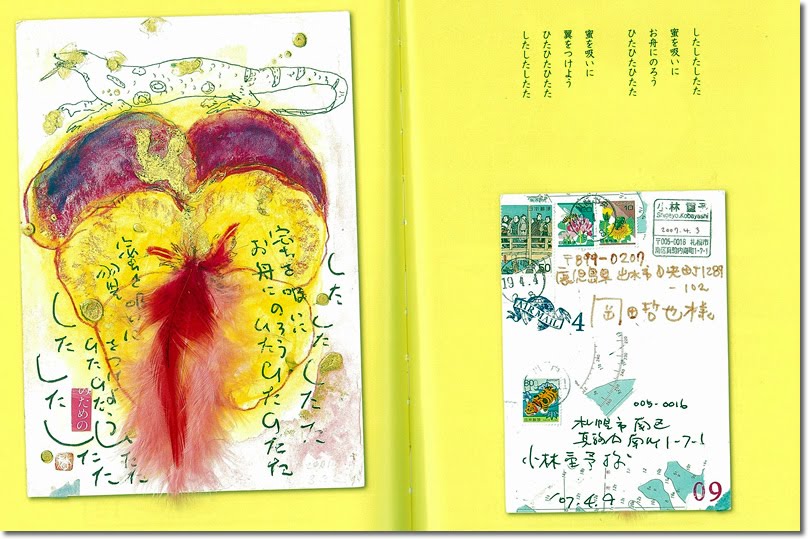 したしたしたた
蜜を吸いに
お舟にのろう
ひたひたひたた
蜜を吸いに
翼をつけよう
ひたひたひたた
したしたしたた
したしたしたた
蜜を吸いに
お舟にのろう
ひたひたひたた
蜜を吸いに
翼をつけよう
ひたひたひたた
したしたしたた
のための
Kobayashi
2007.4.3
札幌市
南区真駒内南町1-7-1
10
50
19.4.4
〒899-0207
鹿児島県出水市
-102
岡田哲也様
4
80
005-0016
札幌市南区
真駒内南町1-7-1
小林重予
'07.4.4
09